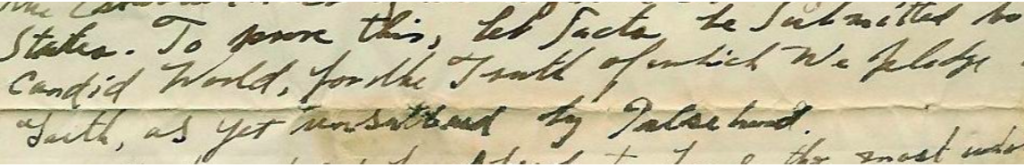 the
States. To prove this, let Facts be Submitted to
Candid World, for the Truth of which We pledge
Faith, as yet unsullied by Falsehood.
the most who